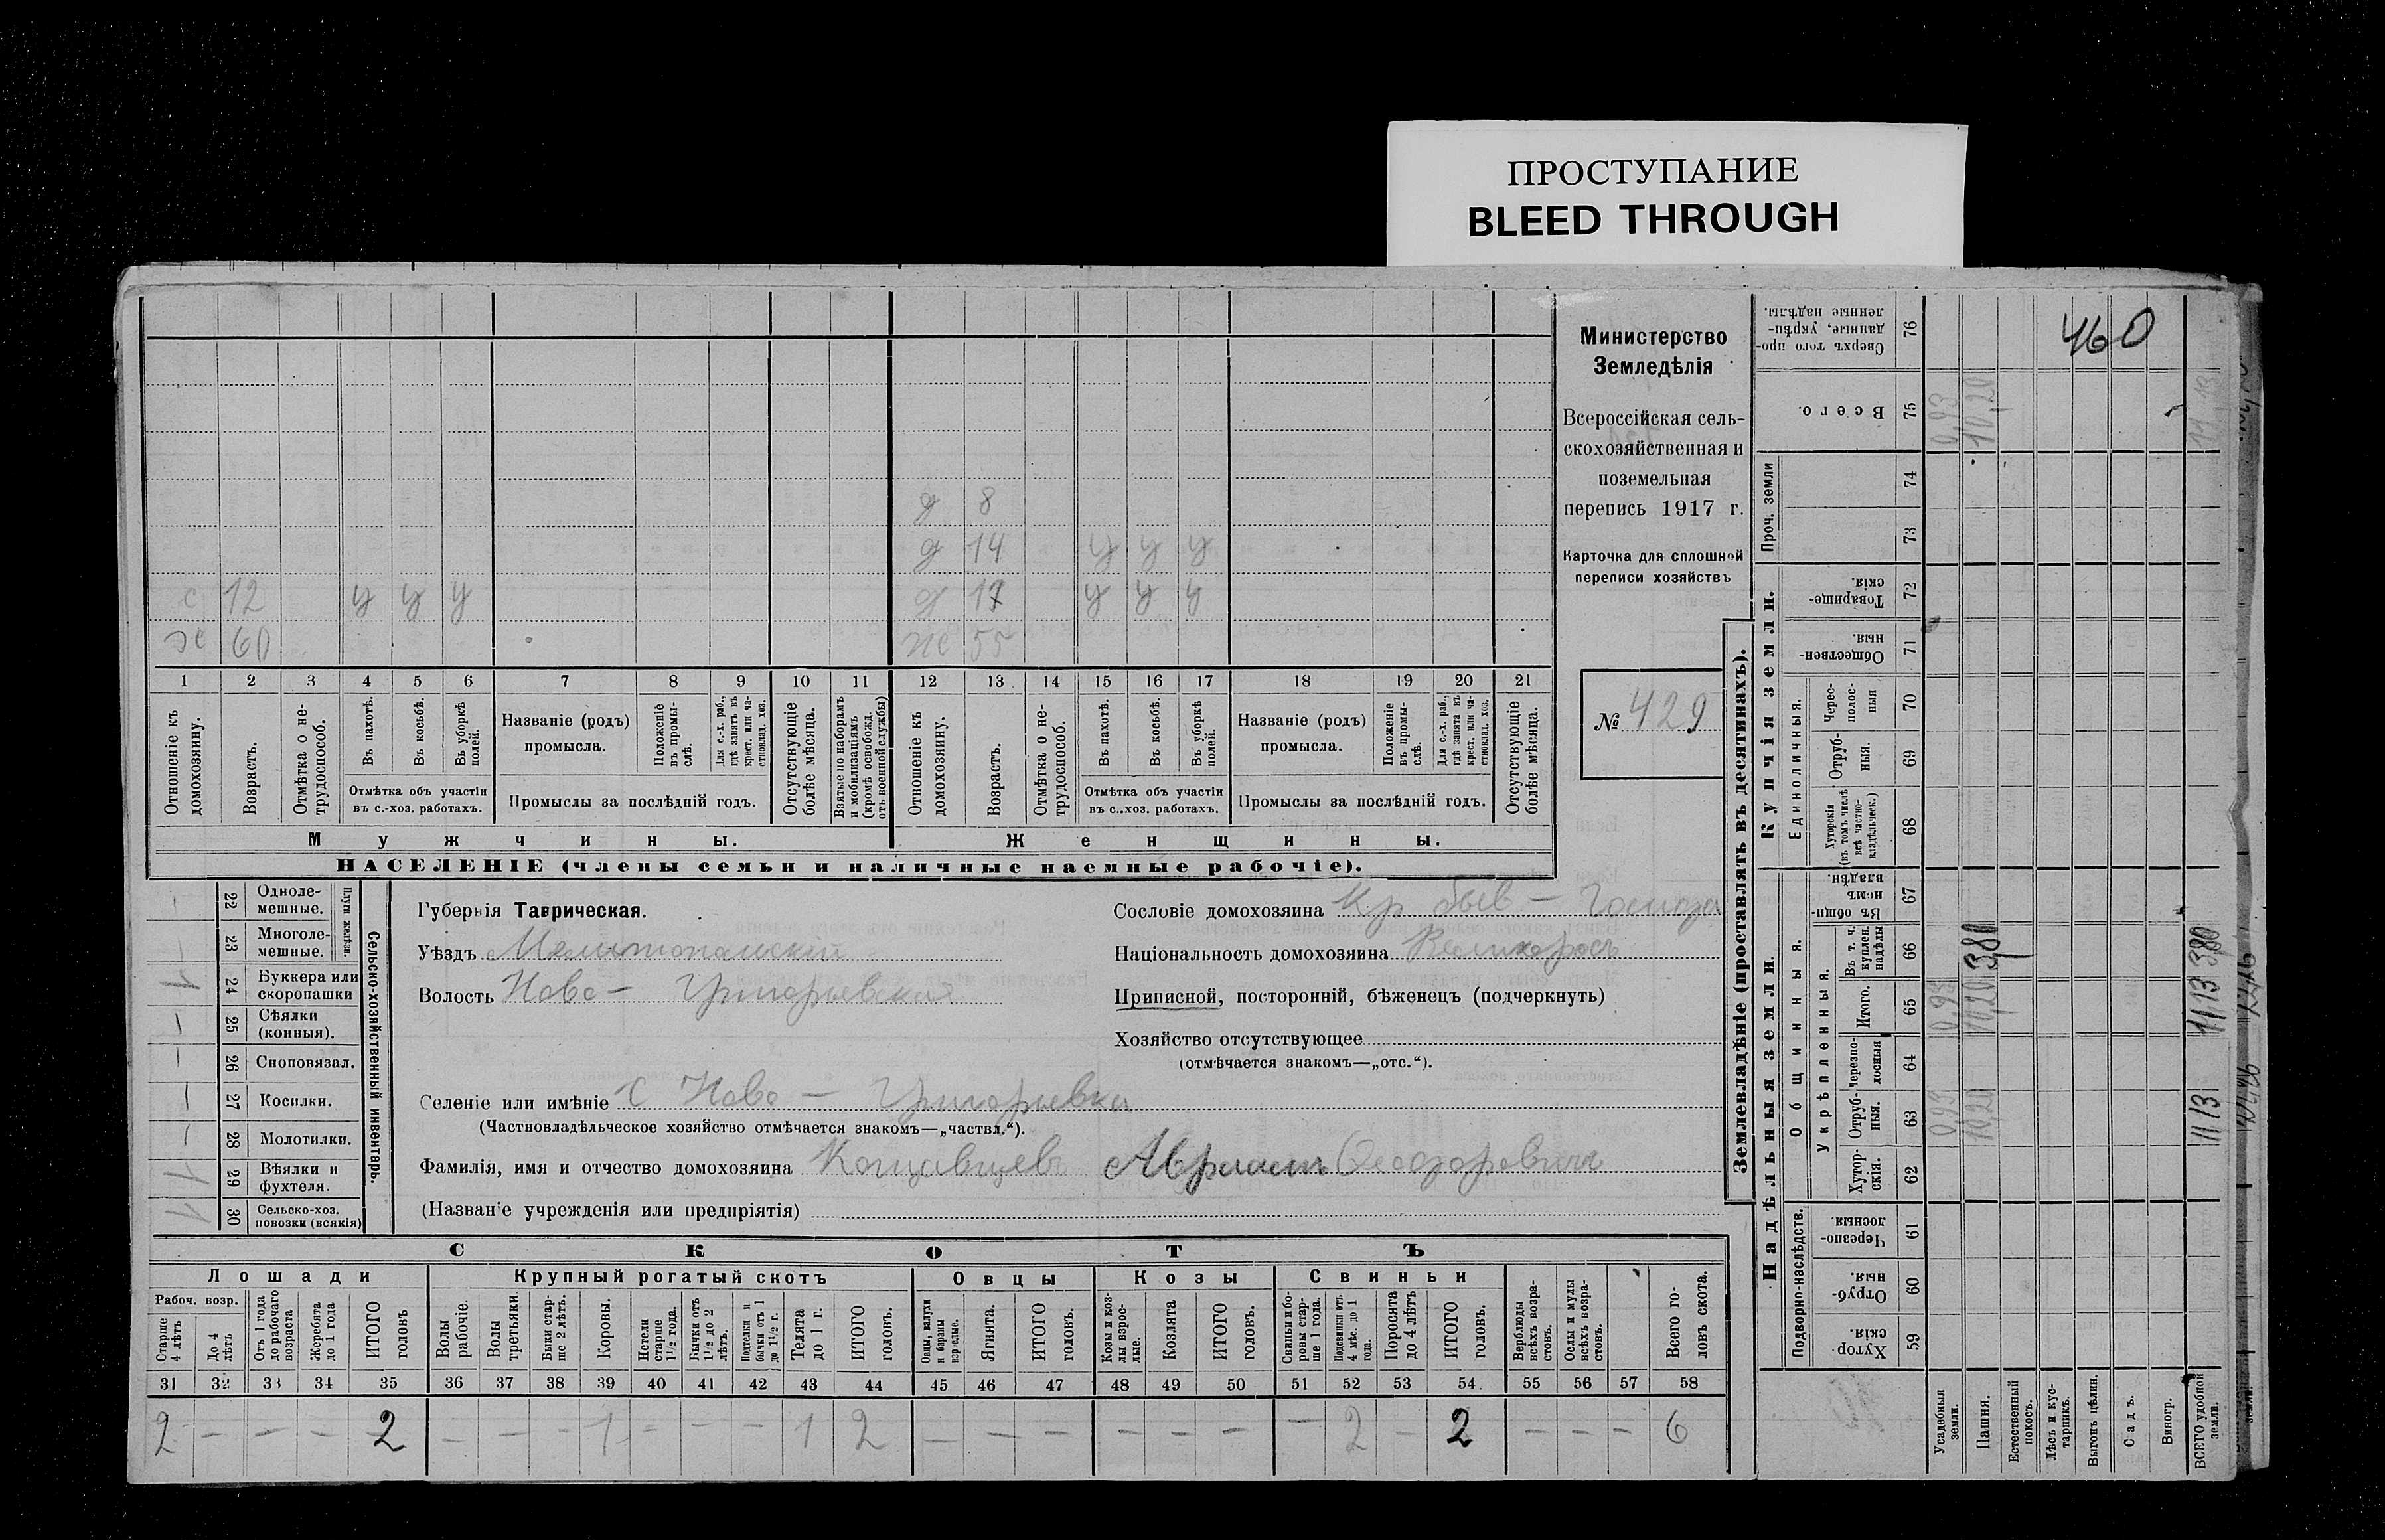 ПРОСТУПАНИЕ
BLEED THROUGH
460
Министерство
Земледѣлія
Всероссійская сель-
скохозяйственная и
поземельная
перепись 1917 г.
Карточка для сплошной
переписи хозяйствъ
№ 429
д 8
д 14 у у у
с 12 у у у д 17 у у у
ж 60 ж 55
1 2 3 4 5 6 7 8 9 10 11 12 13 14 15 16 17 18 19 20 21
Отношеніе къ домохозяину.
Возрастъ.
Отмѣтка о не-трудоспособ.
Въ пахотѣ.
Въ косьбѣ.
Въ уборкѣ полей.
Отмѣтка объ участіи
въ с.-хоз. работахъ.
Названіе (родъ)
промысла.
Положеніе въ промы-слѣ.
Для с.-х. раб., гдѣ занятъ въ крест. или ча-стновлад. хоз.
Промыслы за послѣдній годъ.
Отсутствующіе болѣе мѣсяца.
Взятые по наборамъ и мобилизаціямъ (кромѣ освобожд. отъ военной службы)
Отношеніе къ домохозяину.
Возрастъ.
Отмѣтка о не-трудоспособ.
Въ пахотѣ.
Въ косьбѣ.
Въ уборкѣ полей.
Отмѣтка объ участіи
въ с.-хоз. работахъ.
Названіе (родъ)
промысла.
Положеніе въ промы-слѣ.
Для с.-х. раб., гдѣ занята въ крест. или ча-стновлад. хоз.
Промыслы за послѣдній годъ.
Отсутствующіе болѣе мѣсяца.
Мужчины. Женщины.
НАСЕЛЕНІЕ (члены семьи и наличные наемные рабочіе).
22 Одноле-мешные.
23 Многоле-мешные.
Плуги желѣзн.
1 24 Буккера или скоропашки
— 25 Сѣялки (конныя).
— 26 Сноповязал.
— 27 Косилки.
— 28 Молотилки.
1 29 Вѣялки и фухтеля.
1 30 Сельско-хоз. повозки (всякія)
Сельско-хозяйственный инвентарь.
Губернія Таврическая.
Уѣздъ Мелитопольскій
Волость Ново- Григорьевская
Сословіе домохозяина Кр быв —
Національность домохозяина Великоросъ
Приписной, посторонній, бѣженецъ (подчеркнуть)
Хозяйство отсутствующее
(отмѣчается знакомъ—„отс.“).
Селеніе или имѣніе с Ново — Григорьевка
(Частновладѣльческое хозяйство отмѣчается знакомъ—„частвл.“).
Фамилія, имя и отчество домохозяина Авраамъ Феодоровичъ
(Названіе учрежденія или предпріятія)
СКОТЪ
Лошади Крупный рогатый скотъ Овцы Козы Свиньи
Рабоч. возр.
Старше 4 лѣтъ
До 4 лѣтъ
Отъ 1 года до рабочаго возраста
Жеребята до 1 года
ИТОГО головъ
Волы рабочіе.
Волы третьяки.
Быки стар-ше 2 лѣтъ.
Коровы.
Нетели старше 1½ года.
Бычки отъ 1½ до 2 лѣтъ.
Подтелки и бычки отъ 1 до 1½ г.
Телята до 1 г.
ИТОГО головъ.
Овцы, валухи и бараны взрослые.
Ягнята.
ИТОГО головъ.
Козы и коз-лы взрос-лые.
Козлята
ИТОГО головъ.
Свиньи и бо-ровы стар-ше 1 года.
Подсвинки отъ 4 мѣс. до 1 года.
Поросята до 4 лѣтъ
ИТОГО головъ.
Верблюды всѣхъ возра-стовъ.
Ослы и мулы всѣхъ возра-стовъ.
Всего го-ловъ скота.
31 32 33 34 35 36 37 38 39 40 41 42 43 44 45 46 47 48 49 50 51 52 53 54. 55 56 57 58
2 — — — 2 — — — 1 — — — 1 2 — — — — — — — 2 — 2 — — — 6
Землевладѣніе (проставлять въ десятинахъ).
Купчія земли.
Надѣльныя земли.
Сверхъ того про-данные, укрѣп-ленные надѣлы. 76
Всего. 75 0,93 10,20 11,13
Проч. земли 74
73
Товарище-скія. 72
Обществен-ныя. 71
Единоличныя.
Черес-полос-ныя 70
Отруб-ныя. 69
Хуторскія (въ томъ числѣ всѣ частно-владѣльческ.) 68
Общинныя.
Въ общи-номъ владѣн. 67
Укрѣпленныя.
Въ т. ч. куплен. надѣлы 66 3,80 3,80
Итого. 65 0,93 10,20 11,13
Черезпо-лосныя 64
Отруб-ныя. 63 0,93 10,20 11,13
Хутор-скія. 62
Подворно-наслѣдств.
Черезпо-лосныя. 61
Отруб-ныя. 60
Хутор-скія. 59
Усадебныя земли.
Пашня.
Естественный покосъ.
Лѣсъ и кус-тарникъ.
Выгонъ цѣлин.
Садъ.
Виногр.
ВСЕГО удобной земли.